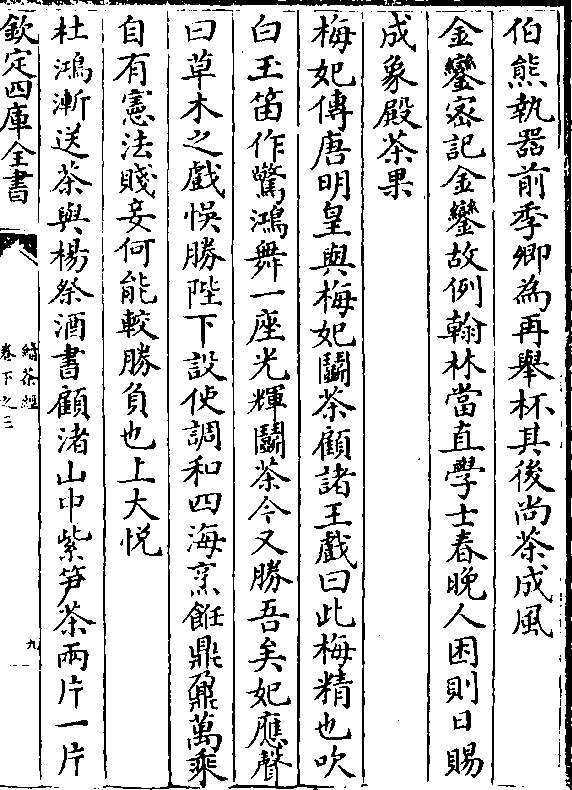 伯熊執器前季卿為再舉杯其後尚茶成風
金鑾密記金鑾故例翰林當直學士春晚人困則日賜
成象殿茶果
梅妃傳唐明皇與梅妃鬬茶顧諸王戲曰此梅精也吹
白玉笛作驚鴻舞一座光輝鬬茶今又勝吾矣妃應聲
曰草木之戲悞勝陛下設使調和四海烹飪鼎鼐萬乗
自有憲法賤妾何能較勝負也上大悦
杜鴻漸送茶與楊祭酒書顧渚山中紫笋茶兩片一片
欽定四庫全書
續茶經
卷下之三
九